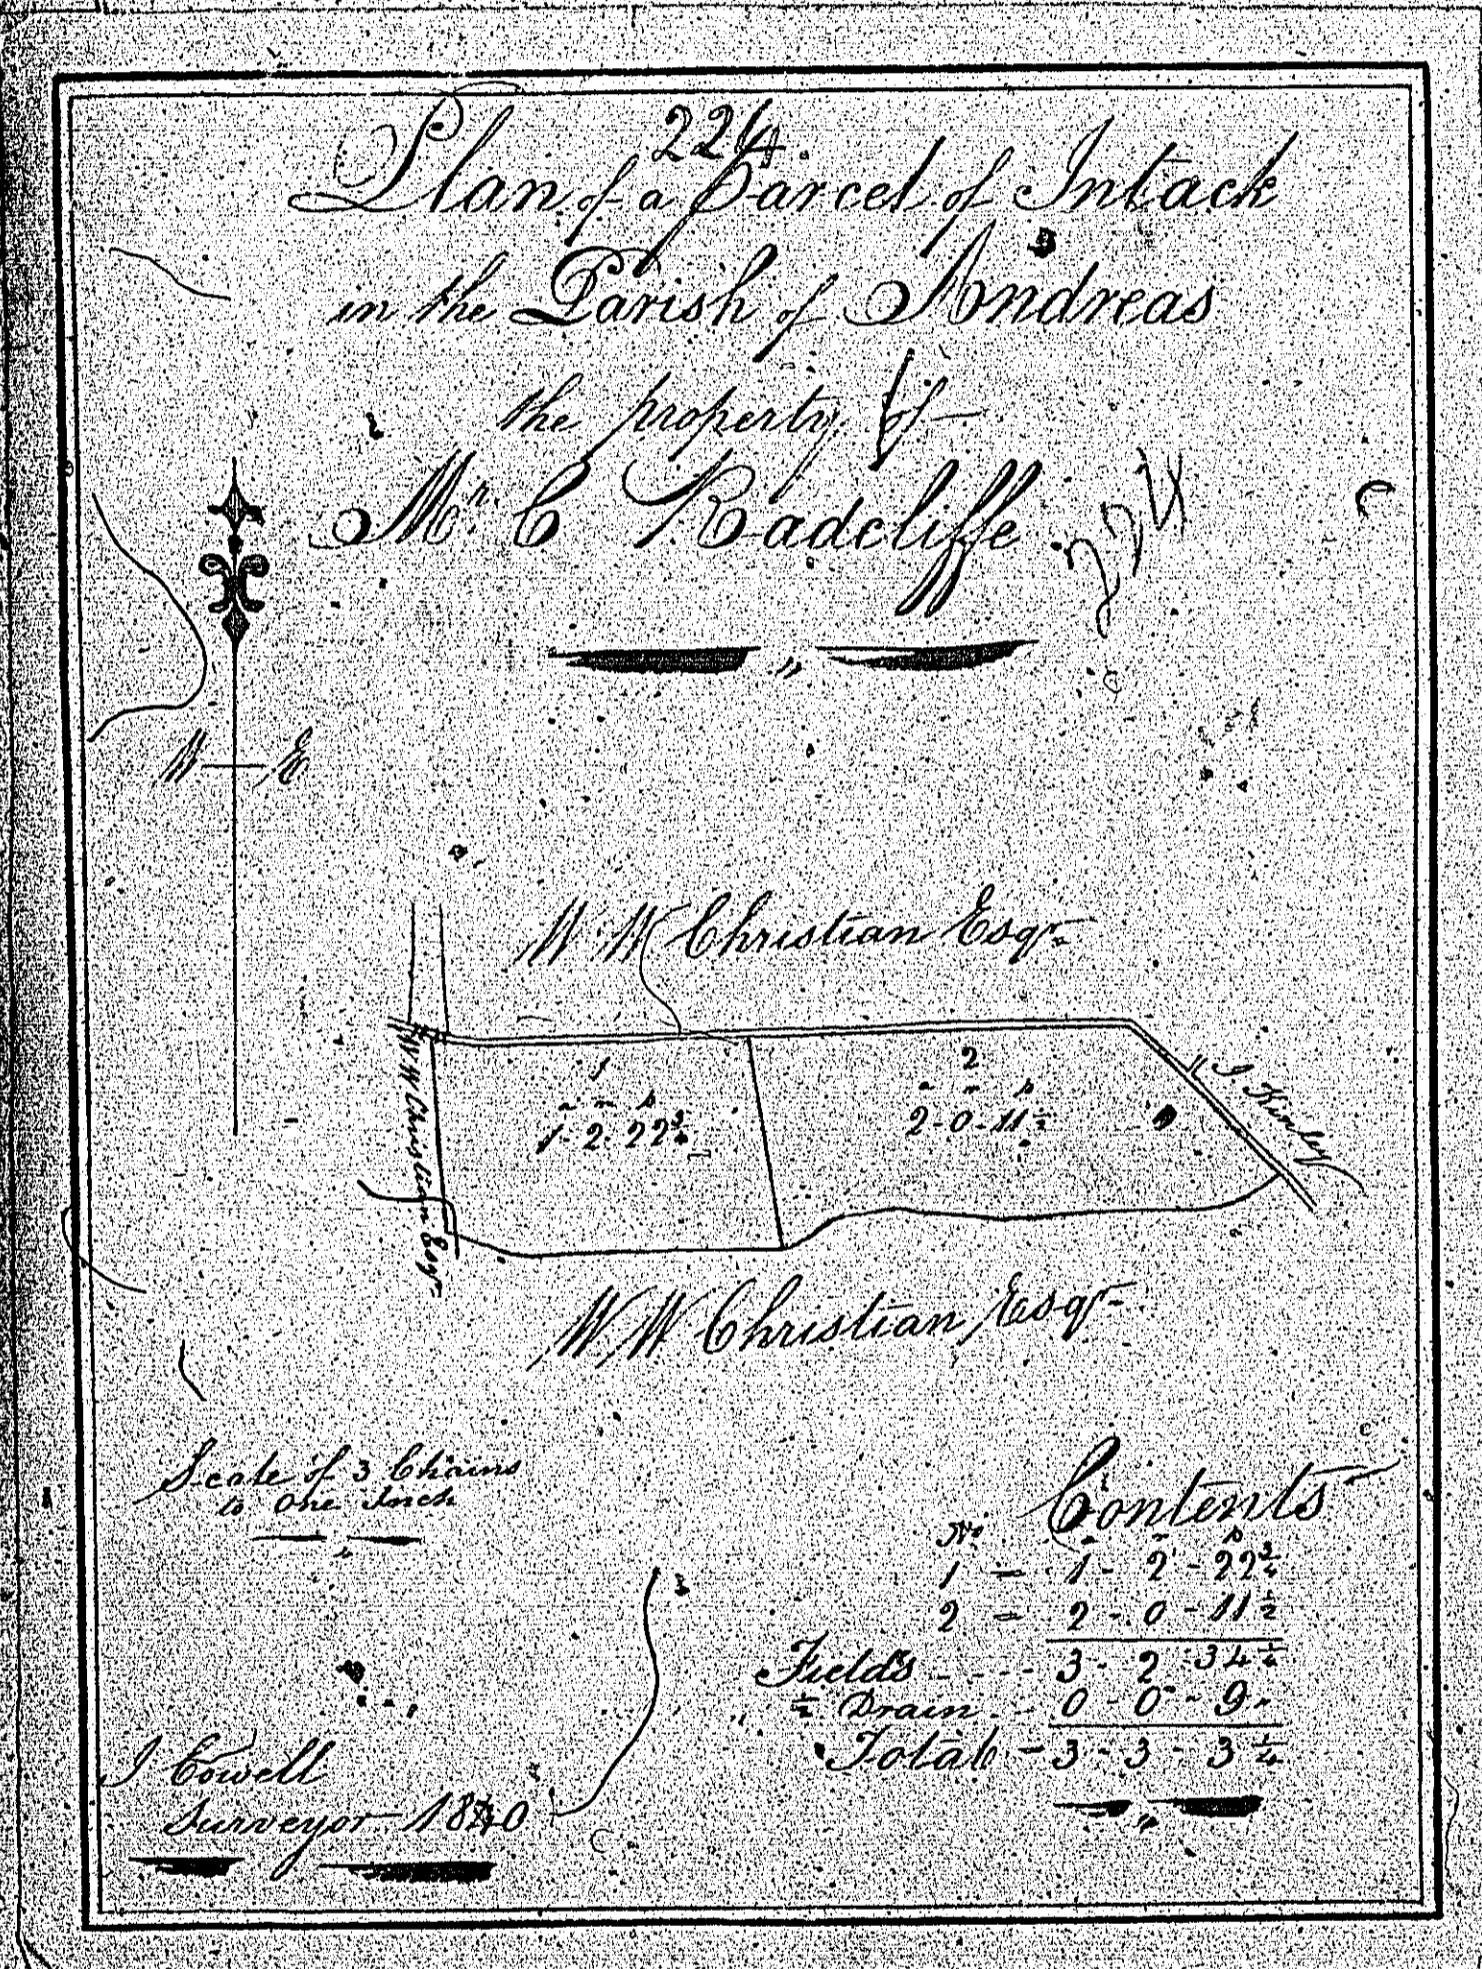 224
Plan of a Parcel of Intack
in the Parish of Andreas
the property of
Mr. C Radcliffe
224
W E
W W Christian Esqr.
W W Christian Esqr.
1
a r p
1-2-22¾
2
a r p
2-0-11½
J Kinley
W W Christian Esqr.
Scale of 3 Chains
to One Inch
Contents
No. a r p
1 = 1-2-22¾
2 = 2-0-11½
Fields - - - 3-2-34¼
½ Drain - - 0-0-9
Total - 3-3-3¼
J Cowell
Surveyor 1840